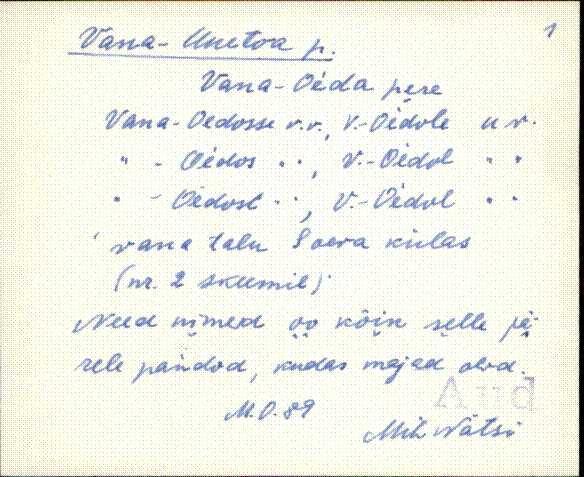 1
Vana-Unetoa p.
Vana-Oėda pere
Vana-Oedosse v.v., V.-Oėdole u v.
" - Oėdos " ", V.-Oėdol " "
" - Oėdost " ", V.-Oėdol " "
vana talu Soeva külas
(nr. 2 skeemil)
Need nimed oo kõik selle jä-
rele pandod, kudas majad olod.
Aud
M.O. 89
Mih. Nätsi